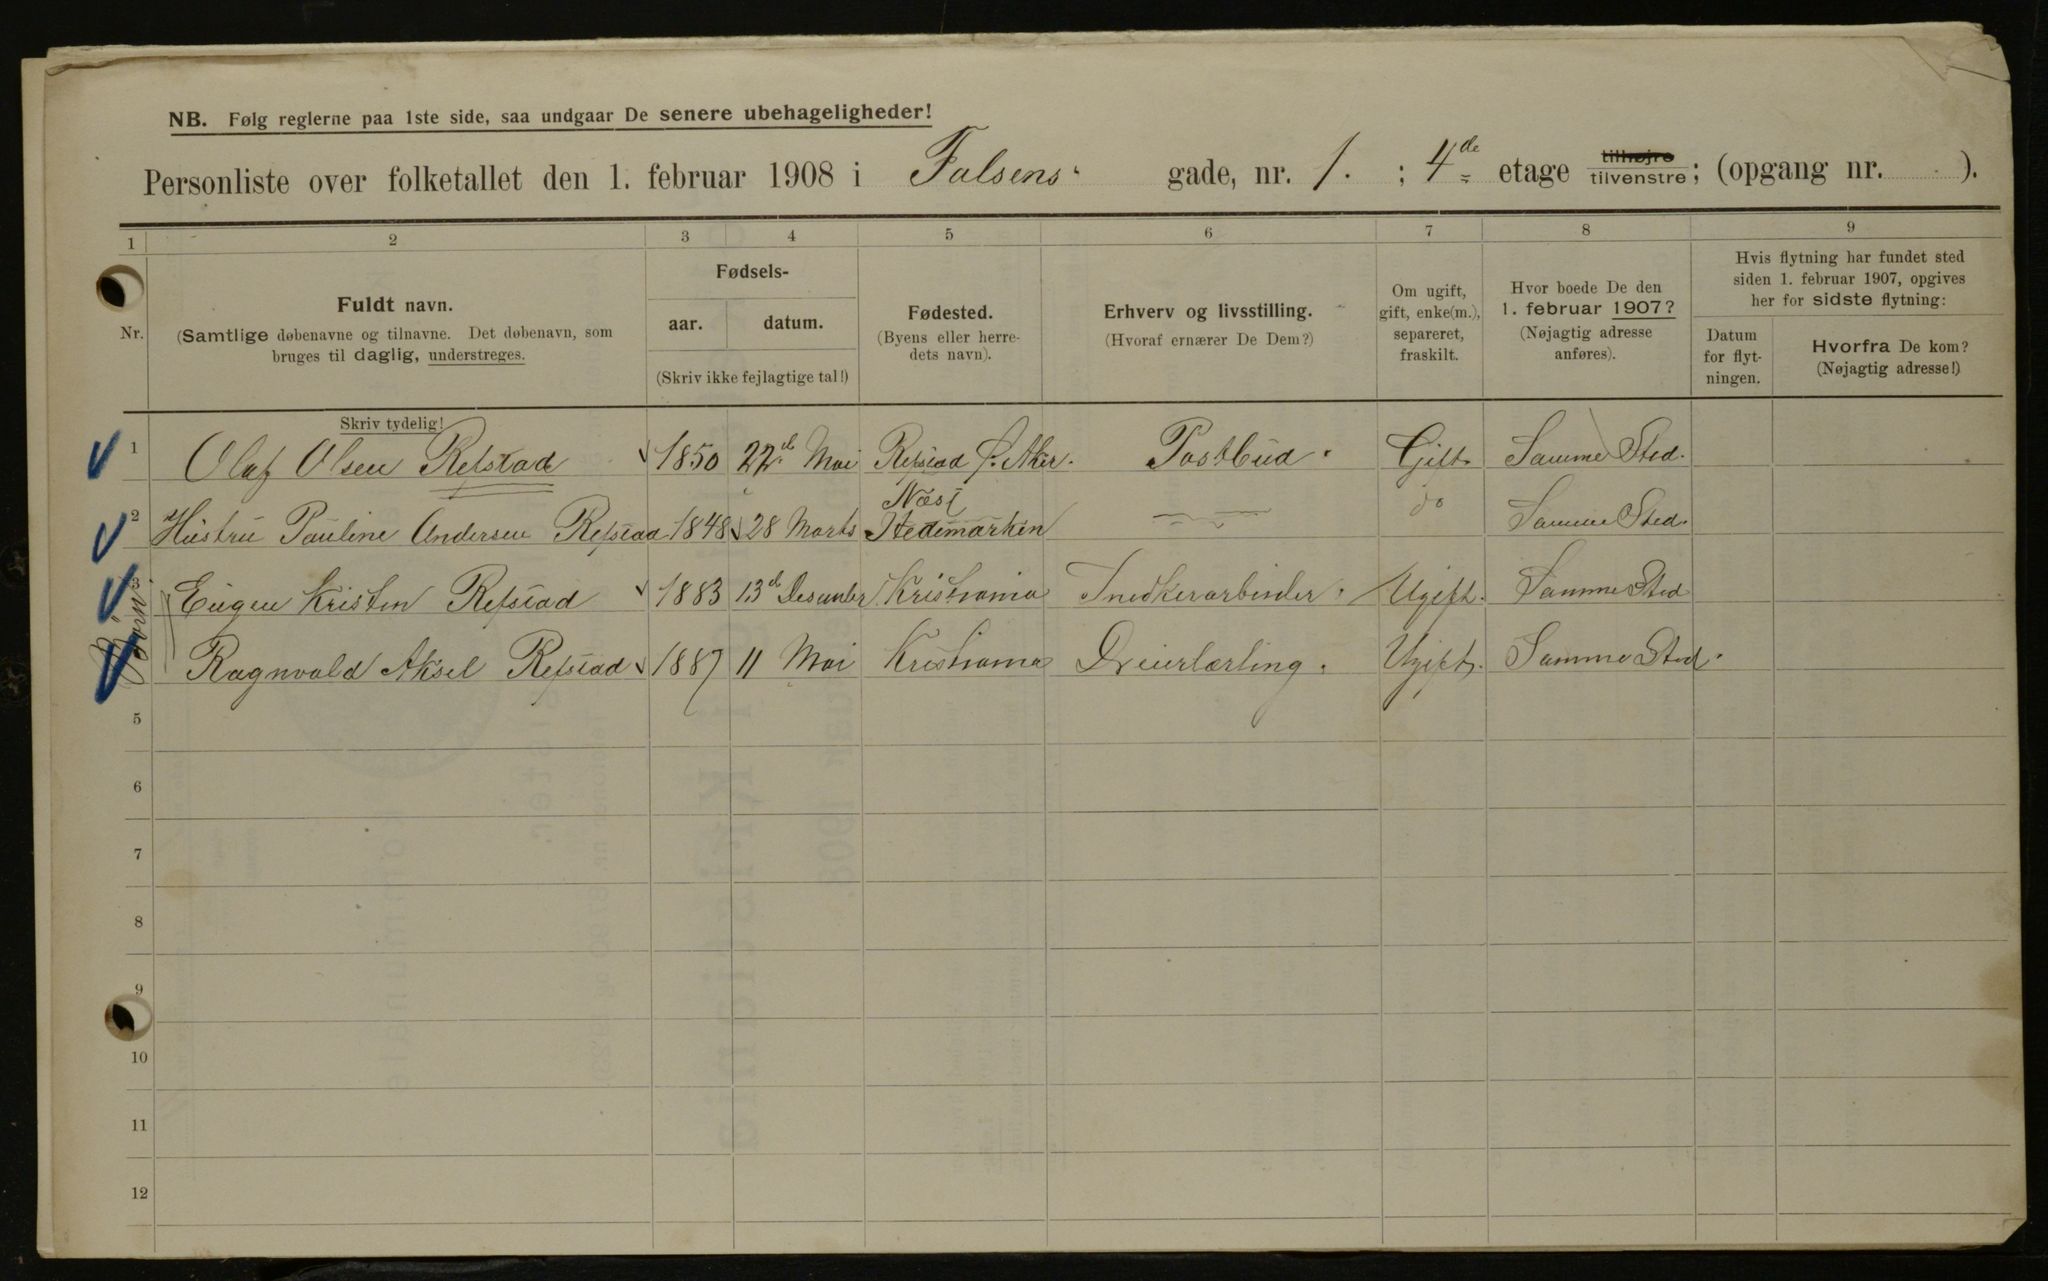 NB. Følg reglerne paa 1ste side, saa undgaar De senere ubehageligheder!
Personliste over folketallet den 1. februar 1908 i Falsens gade, nr. 1. ; 4de etage tilhøjre tilvenstre; (opgang nr. ).
1 2 3 4 5 6 7 8 9
Nr.
Fuldt navn.
(Samtlige døbenavne og tilnavne. Det døbenavn, som
bruges til daglig, understreges.
Fødsels-
aar. datum.
(Skriv ikke fejlagtige tal!)
Fødested.
(Byens eller herre-
dets navn).
Erhverv og livsstilling.
(Hvoraf ernærer De Dem?)
Om ugift,
gift, enke(m.),
separeret,
fraskilt.
Hvor boede De den
1. februar 1907?
(Nøjagtig adresse
anføres).
Hvis flytning har fundet sted
siden 1. februar 1907, opgives
her for sidste flytning:
Datum
for flyt-
ningen.
Hvorfra De kom?
(Nøjagtig adresse!)
Skriv tydelig!
1 Olaf Olsen Refstad 1850 22d Mai Refstad Ø. Aker. Postbud Gift. Samme Sted.
2 Hustru Pauline Andersen Refstad 1848 28 Marts Næs Hedemarken do Samme Sted.
Børn
3 Eugen Kristen Refstad 1883 13d Desember Kristiania Snedkerarbeider Ugift. Samme Sted
Ragnvald Aksel Refstad 1887 11 Mai Kristiania Dreierlærling. Ugift. Samme Sted.
5
6
7
8
9
10
11
12